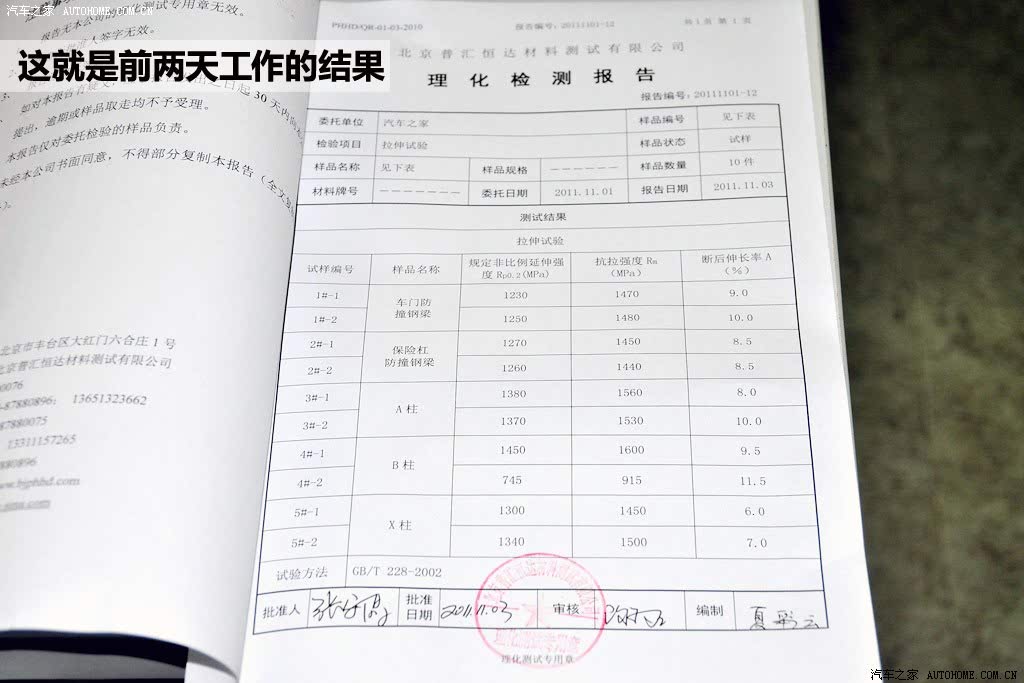 汽车之家 WWW.AUTOHOME.COM.CN
化测试专用章无效。
报告无本公司的
准人签字无效。
这就是前两天工作的结果
之日起 30 天内向本
提出,逾期或样品取走均不予受理。
本报告仅对委托检验的样品负责。
未经本公司书面同意,不得部分复制本报告(全文复
北京市丰台区大红门六合庄 1 号
北京普汇恒达材料测试有限公司
00076
-87880896; 13651323662
87880075
13311157265
880896
www.bjphhd.com
PHHD/QR-01-03-2010 报告编号: 20111101-12 共 1 页 第 1 页
北京普汇恒达材料测试有限公司
理化检测报告
报告编号: 20111101-12
委托单位 汽车之家 样品编号 见下表
检验项目 拉伸试验 样品状态 试样
样品名称 见下表 样品规格 —————— 样品数量 10 件
材料牌号 ——————— 委托日期 2011.11.01 报告日期 2011.11.03
测试结果
拉伸试验
试样编号 样品名称 规定非比例延伸强度 Rp0.2(MPa) 抗拉强度 Rm (MPa) 断后伸长率 A (%)
1#-1 车门防撞钢梁 1230 1470 9.0
1#-2 1250 1480 10.0
2#-1 保险杠防撞钢梁 1270 1450 8.5
2#-2 1260 1440 8.5
3#-1 A 柱 1380 1560 8.0
3#-2 1370 1530 10.0
4#-1 B 柱 1450 1600 9.5
4#-2 745 915 11.5
5#-1 X 柱 1300 1450 6.0
5#-2 1340 1500 7.0
试验方法 GB/T 228-2002
批准人 批准日期 2011.11.03 审核 编制 夏彩云
理化测试专用章
汽车之家 AUTOHOME.COM.CN